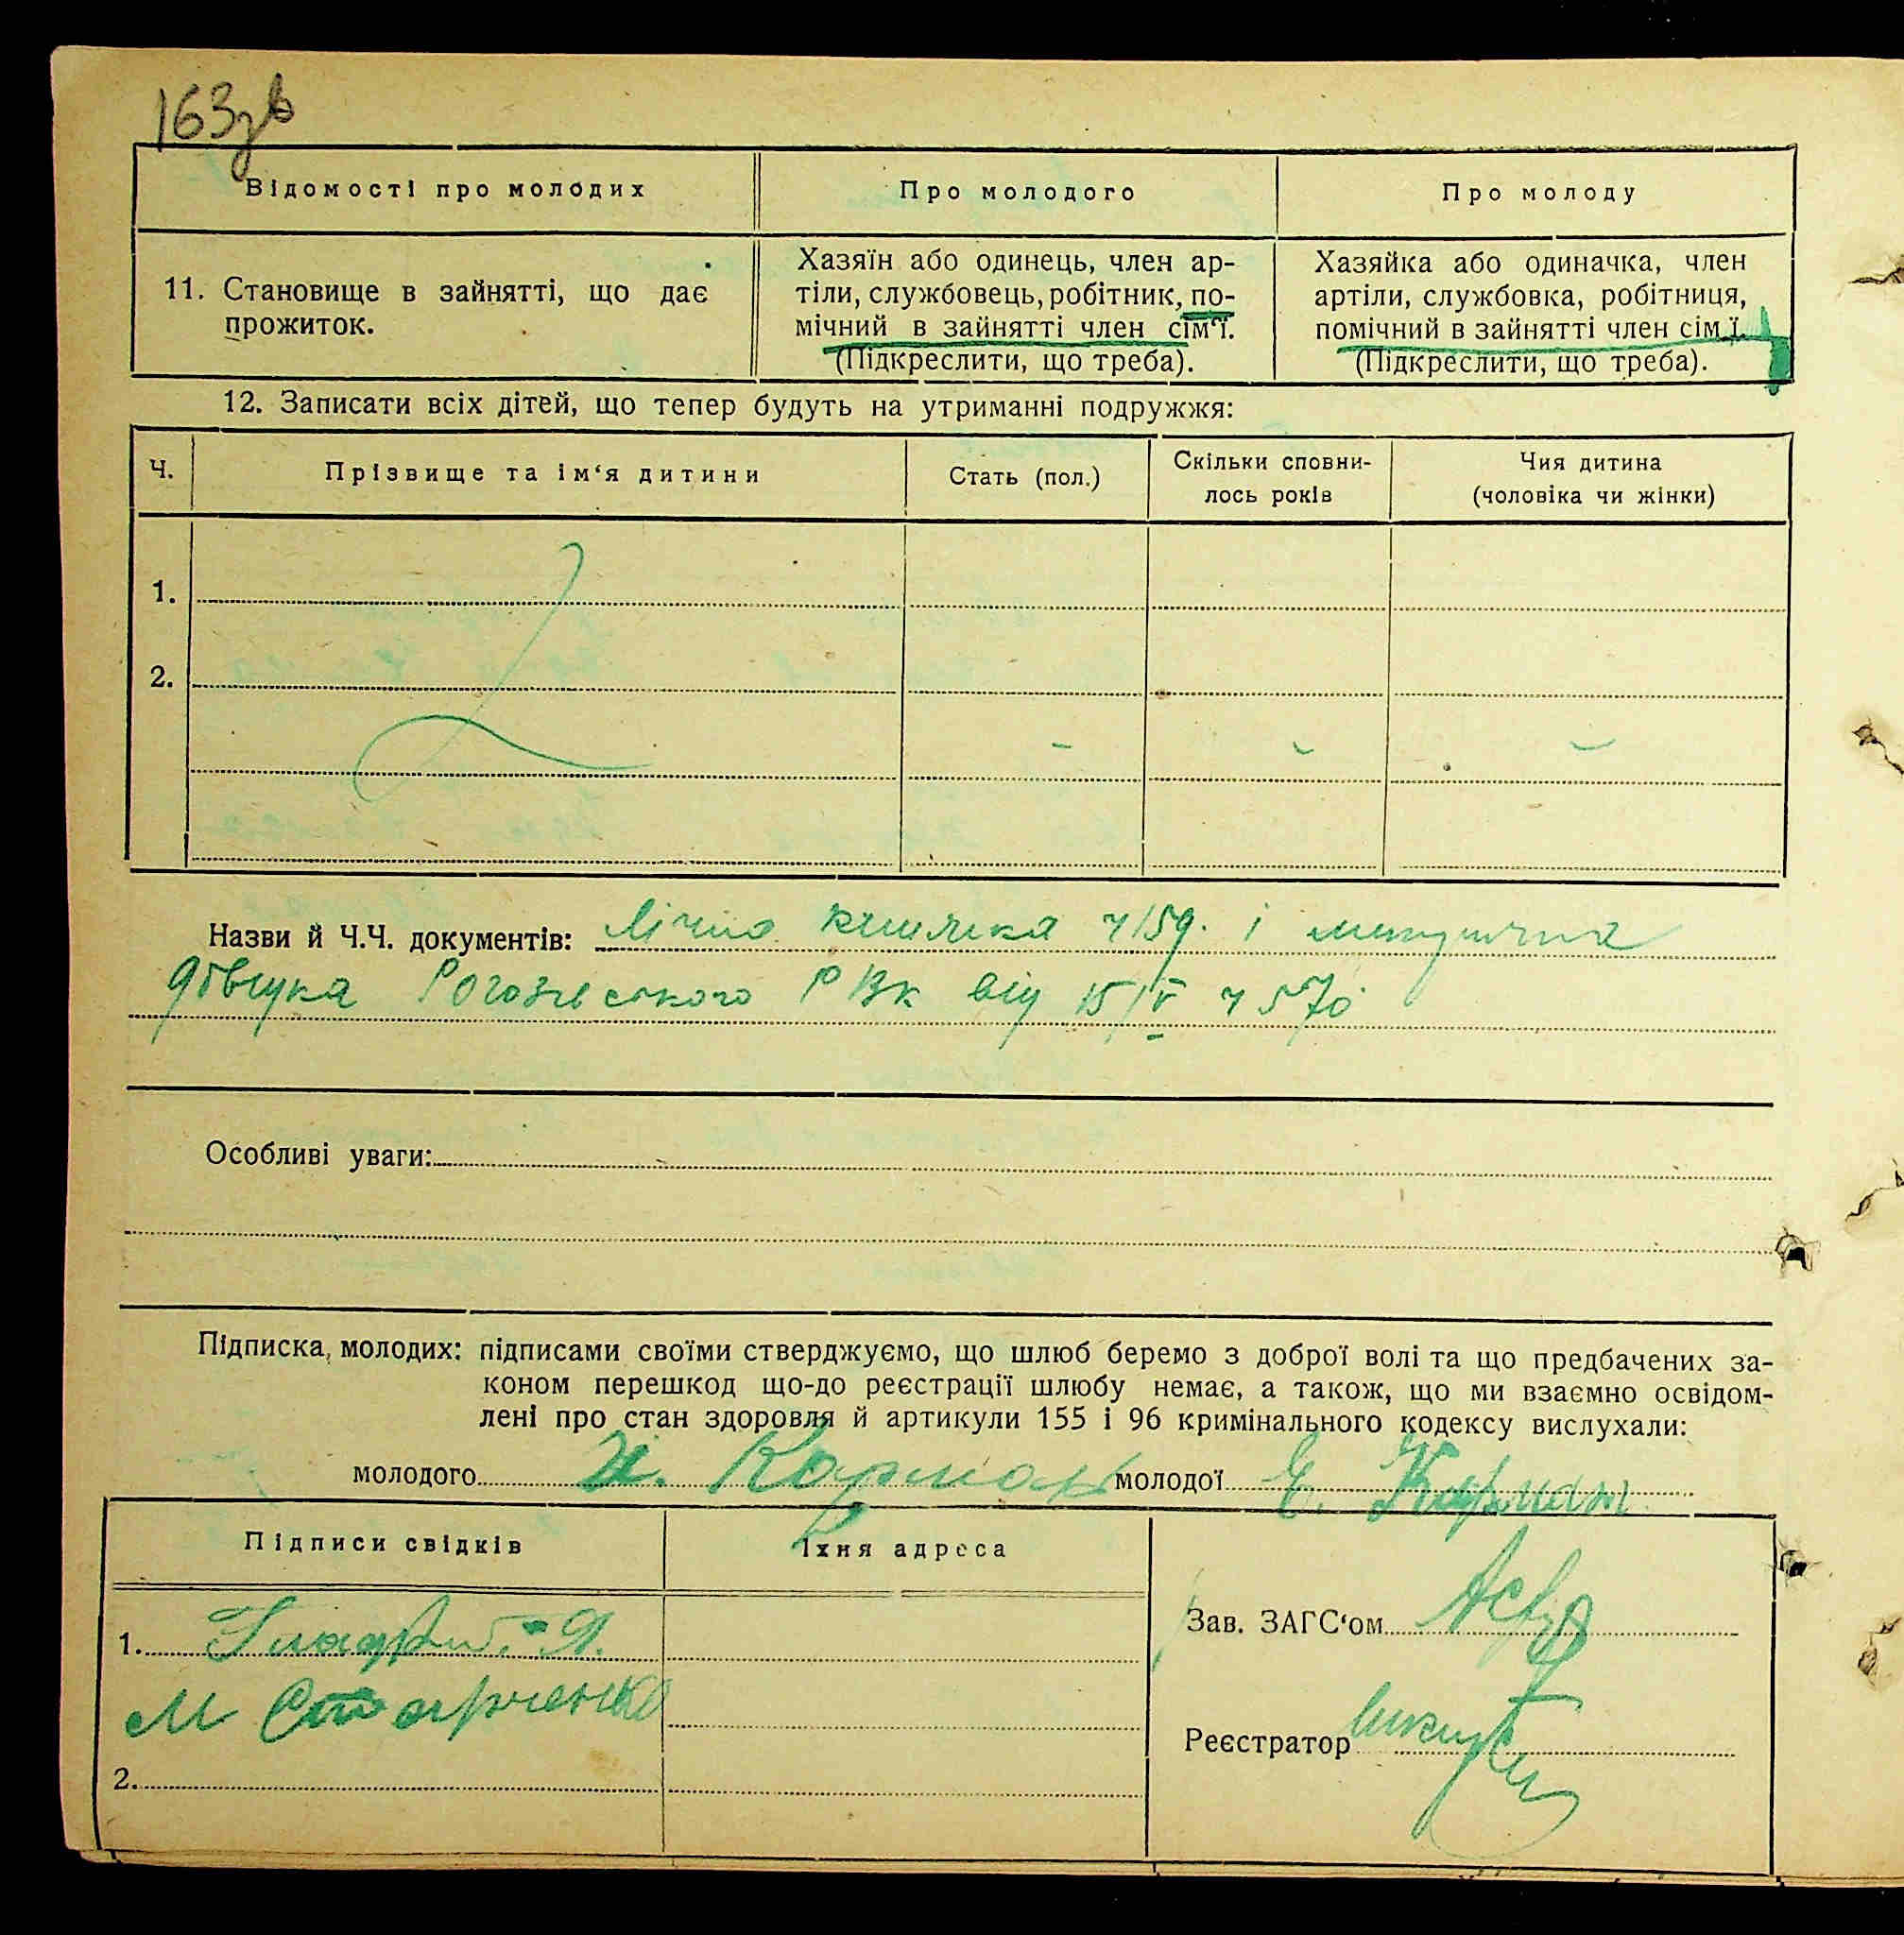 163зв
Відомості про молодих
Про молодого
Про молоду
11. Становище в зайнятті, що дає
прожиток.
Хазяїн або одинець, член ар-
тіли, службовець, робітник, по-
мічний в зайнятті член сім'ї.
(Підкреслити, що треба).
Хазяйка або одиначка, член
артіли, службовка, робітниця,
помічний в зайнятті член сім'ї.
(Підкреслити, що треба).
12. Записати всіх дітей, що тепер будуть на утриманні подружжя:
Ч.
Прізвище та ім'я дитини
Стать (пол.)
Скільки сповни-
лось років
Чия дитина
(чоловіка чи жінки)
1.
2.
Назви й Ч.Ч. документів: книжка і
Рогозівського РВК від 15/V
Особливі уваги:
Підписка, молодих: підписами своїми стверджуємо, що шлюб беремо з доброї волі та що предбачених за-
коном перешкод що-до реєстрації шлюбу немає, а також, що ми взаємно освідом-
лені про стан здоровля й артикули 155 і 96 кримінального кодексу вислухали:
молодого И. Корман молодої Є. Карман
Підписи свідків
Їхня адреса
1.
М Старченко
2.
Зав. ЗАГС'ом
Реєстратор